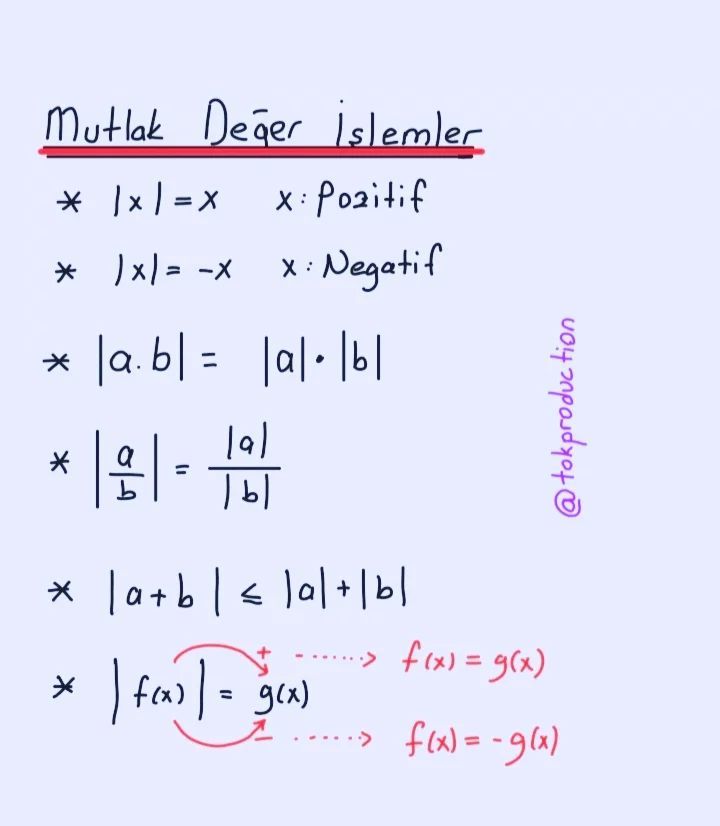 Mutlak Değer İşlemler
* |x| = x x: Pozitif
* |x| = -x x: Negatif
* |a.b| = |a|·|b|
* |a/b| = |a|/|b|
* |a+b| ≤ |a|+|b|
* |f(x)| = g(x)
+ ------> f(x) = g(x)
- ------> f(x) = -g(x)
@tokproduction